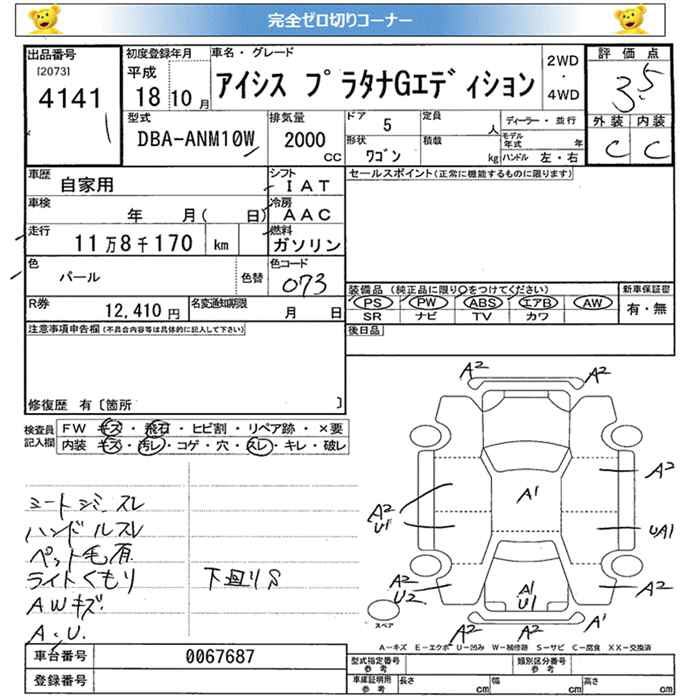 完全ゼロ切りコーナー
出品番号 [2073] 4141
初度登録年月 平成 18 10 月
車名・グレード アイシス プラタナGエディション
2WD・4WD
評価点 3.5
外装 内装
C C
型式 DBA-ANM10W
排気量 2000 CC
ドア 5 定員 人 ディーラー・並行
形状 ワゴン 積載 kg モデル年式 年
ハンドル 左・右
車歴 自家用
シフト IAT
車検 年 月( 日)
冷房 AAC
走行 11万8千170 km
燃料 ガソリン
色 パール 色替 色コード 073
R券 12,410 円 名変通知期限 月 日
セールスポイント(正常に機能するものに限ります)
装備品 (純正品に限り○をつけてください) 新車保証書
PS PW ABS エアB AW 有・無
SR ナビ TV カワ
後日品
注意事項申告欄 (不具合内容等は具体的に記入して下さい)
修復歴 有〔箇所 〕
検査員記入欄
FW キズ・飛石・ヒビ割・リペア跡・×要
内装 キズ・汚レ・コゲ・穴・スレ・キレ・破レ
シートシミ スレ
ハンドルスレ
ペット毛有
ライトくもり 下廻りS
AWキズ
A・U.
A2 A2
A2 U1 A1 A2
UA1
A2 U2 A1 U1 A2
スペア
A2 A2 A1
A-キズ E-エクボ U-凹み W-補修跡 S-サビ C-腐食 XX-交換済
車台番号 0067687
登録番号
型式指定番号 参考 類別区分番号 参考
車庫証明用 参考 長さ cm 幅 cm 高さ cm